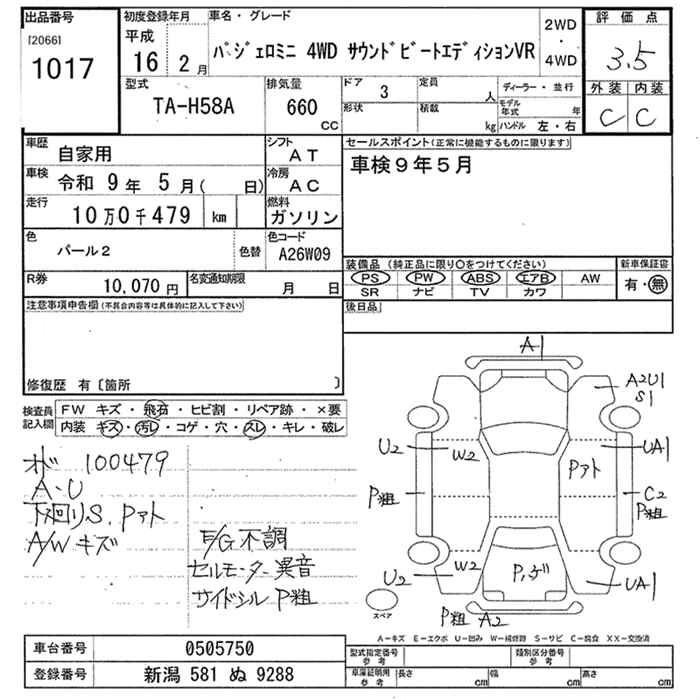 出品番号
[2066]
1017
初度登録年月
平成
16年 2月
車名・グレード
パジェロミニ 4WD サウンドビートエディションVR
2WD
・
4WD
評価点
3.5
外装 内装
C C
型式
TA-H58A
排気量
660
cc
ドア
3
形状
定員
人
積載
kg
ディーラー・並行
モデル年式
年
ハンドル 左・右
車歴
自家用
シフト
AT
車検
令和 9年 5月( 日)
冷房
AC
走行
10万0千479 km
燃料
ガソリン
色
パール2
色替
色コード
A26W09
R券
10,070円
名変通知期限
月 日
セールスポイント(正常に機能するものに限ります)
車検9年5月
装備品(純正品に限り○をつけてください)
PS PW ABS エアB AW
SR ナビ TV カワ
新車保証書
有・無
後日品
注意事項申告欄(不具合内容等は具体的に記入して下さい)
修復歴 有〔箇所 〕
検査員記入欄
FW キズ・飛石・ヒビ割・リペア跡・×要
内装 キズ・汚レ・コゲ・穴・スレ・キレ・破レ
100479
A-U
下回りS、Pアト
A/Wキズ
E/G不調
セルモーター異音
サイドシルP粗
A1
A2U1
S1
U2
W2
Pアト
UA1
P粗
C2
P粗
U2
W2
P、ゲ
UA1
P粗
A2
スペア
A-キズ E-エクボ U-凹み W-補修跡 S-サビ C-腐食 XX-交換済
車台番号
0505750
登録番号
新潟 581 ぬ 9288
型式指定番号
参考
類別区分番号
参考
車庫証明用
参考
長さ
cm
幅
cm
高さ
cm